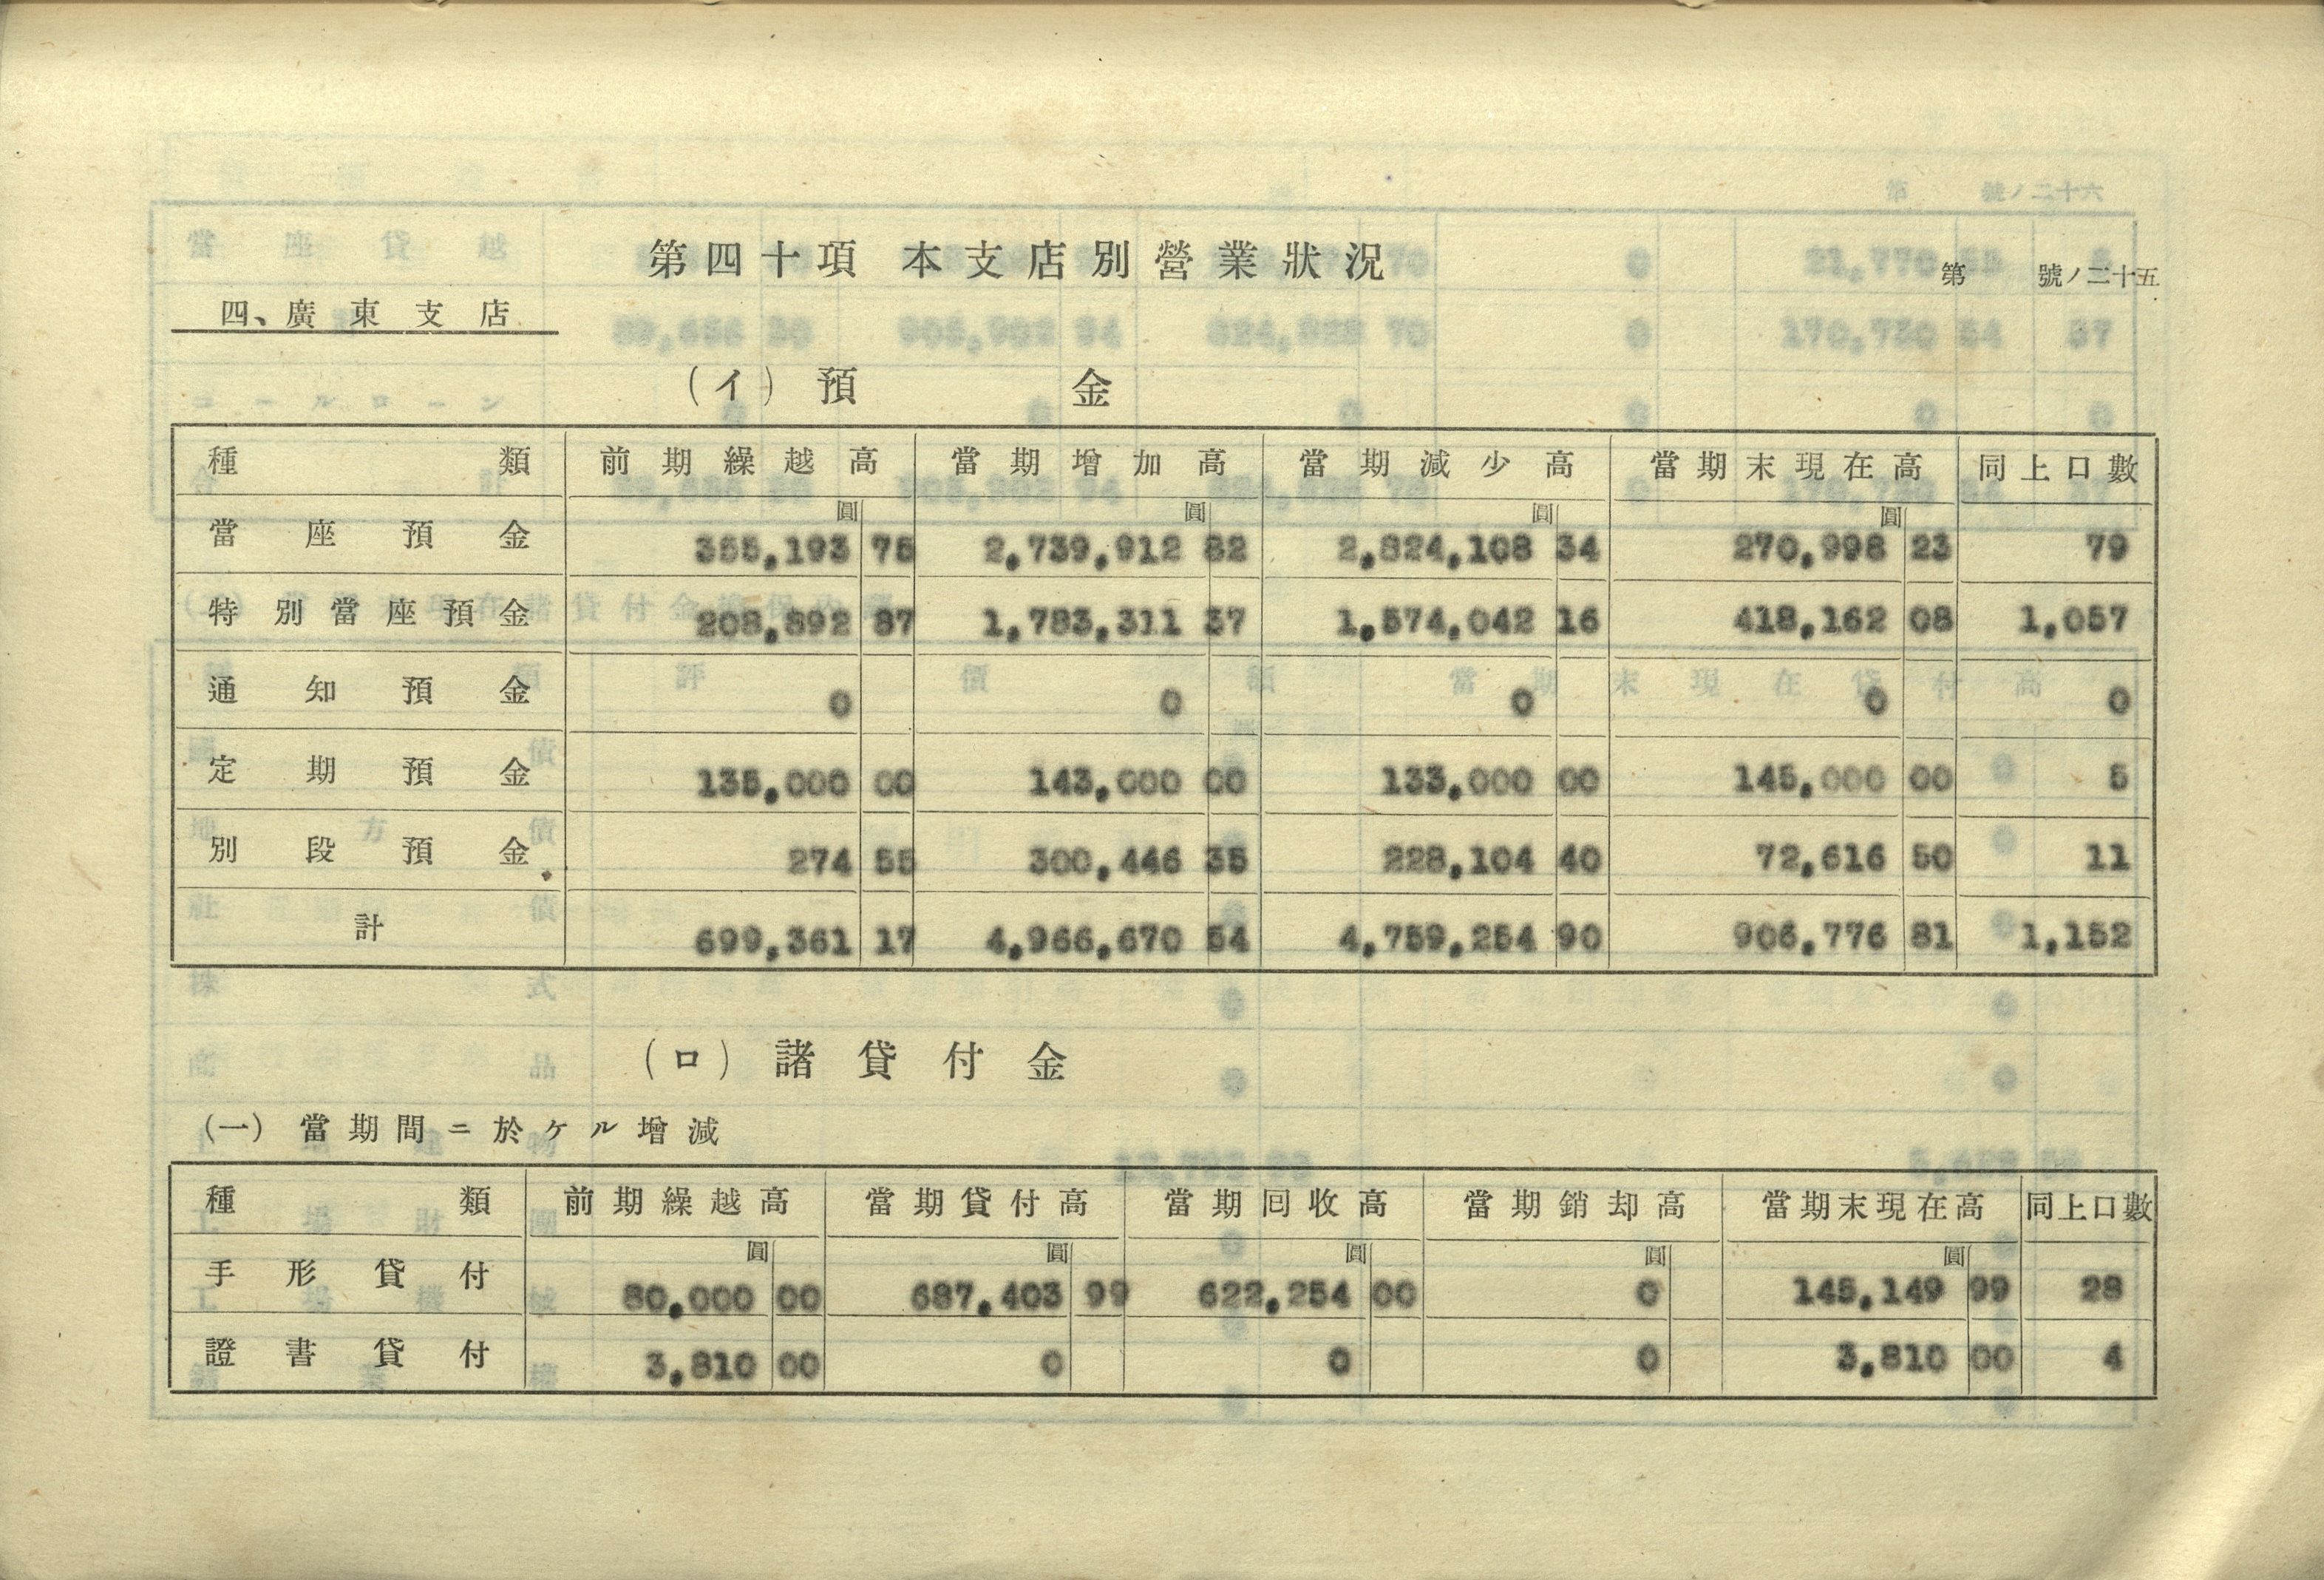 第四十項 本支店別營業狀況
第 號ノ二十五
四、廣東支店
(イ) 預金
種類 前期繰越高 當期增加高 當期減少高 當期末現在高 同上口數
圓 圓 圓 圓
當座預金 355,193 75 2,739,912 82 2,824,108 34 270,998 23 79
特別當座預金 208,892 87 1,783,311 37 1,574,042 16 418,162 08 1,057
通知預金 0 0 0 0 0
定期預金 135,000 00 143,000 00 133,000 00 145,000 00 5
別段預金 274 55 300,446 35 228,104 40 72,616 50 11
計 699,361 17 4,966,670 54 4,759,254 90 906,776 81 1,152
(ロ) 諸貸付金
(一) 當期間ニ於ケル增減
種類 前期繰越高 當期貸付高 當期囘收高 當期銷却高 當期末現在高 同上口數
圓 圓 圓 圓 圓
手形貸付 80,000 00 687,403 99 622,254 00 0 145,149 99 28
證書貸付 3,810 00 0 0 0 3,810 00 4